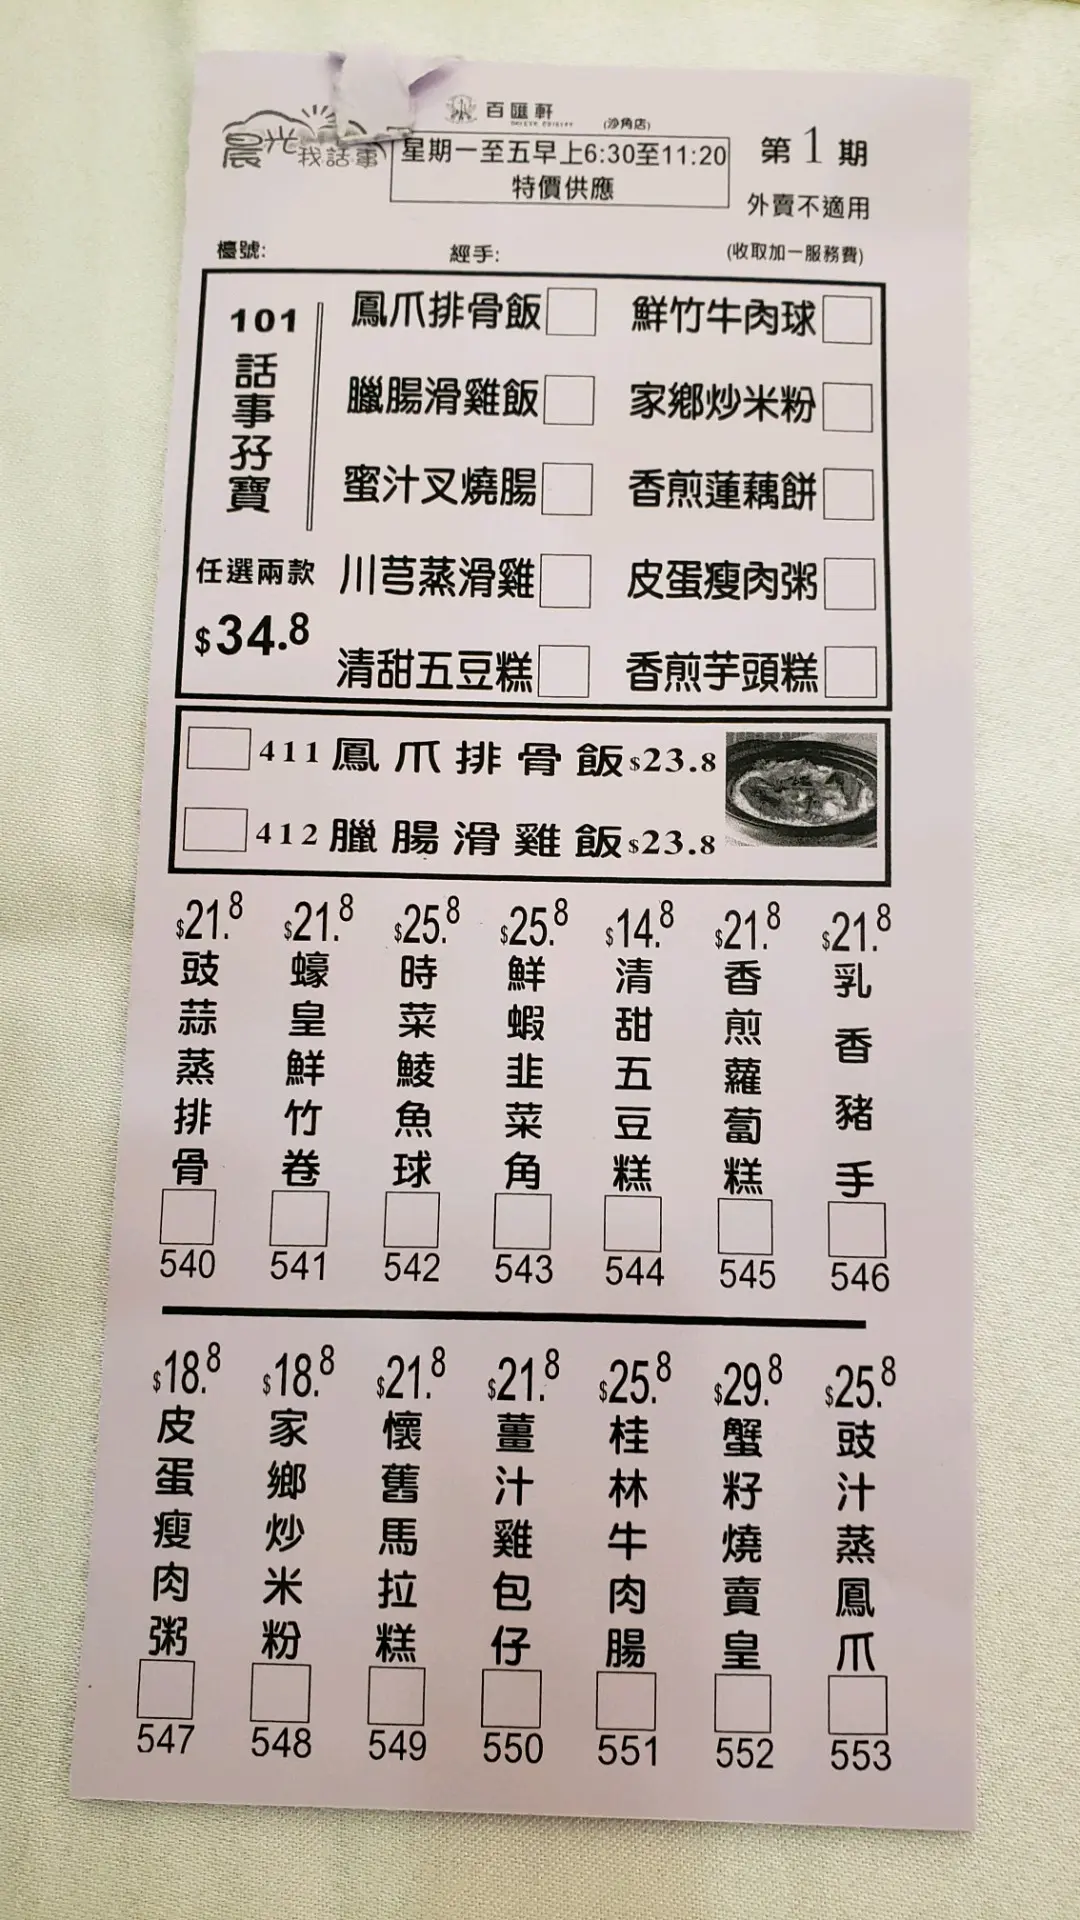 百匯軒
(沙角店)
晨光我話事
星期一至五早上6:30至11:20
特價供應
第1期
外賣不適用
檯號:
經手:
(收取加一服務費)
101
話事孖寶
任選兩款
$34.8
鳳爪排骨飯
鮮竹牛肉球
臘腸滑雞飯
家鄉炒米粉
蜜汁叉燒腸
香煎蓮藕餅
川芎蒸滑雞
皮蛋瘦肉粥
清甜五豆糕
香煎芋頭糕
411 鳳爪排骨飯 $23.8
412 臘腸滑雞飯 $23.8
$21.8
豉蒜蒸排骨
540
$21.8
蠔皇鮮竹卷
541
$25.8
時菜鯪魚球
542
$25.8
鮮蝦韭菜角
543
$14.8
清甜五豆糕
544
$21.8
香煎蘿蔔糕
545
$21.8
乳香豬手
546
$18.8
皮蛋瘦肉粥
547
$18.8
家鄉炒米粉
548
$21.8
懷舊馬拉糕
549
$21.8
薑汁雞包仔
550
$25.8
桂林牛肉腸
551
$29.8
蟹籽燒賣皇
552
$25.8
豉汁蒸鳳爪
553